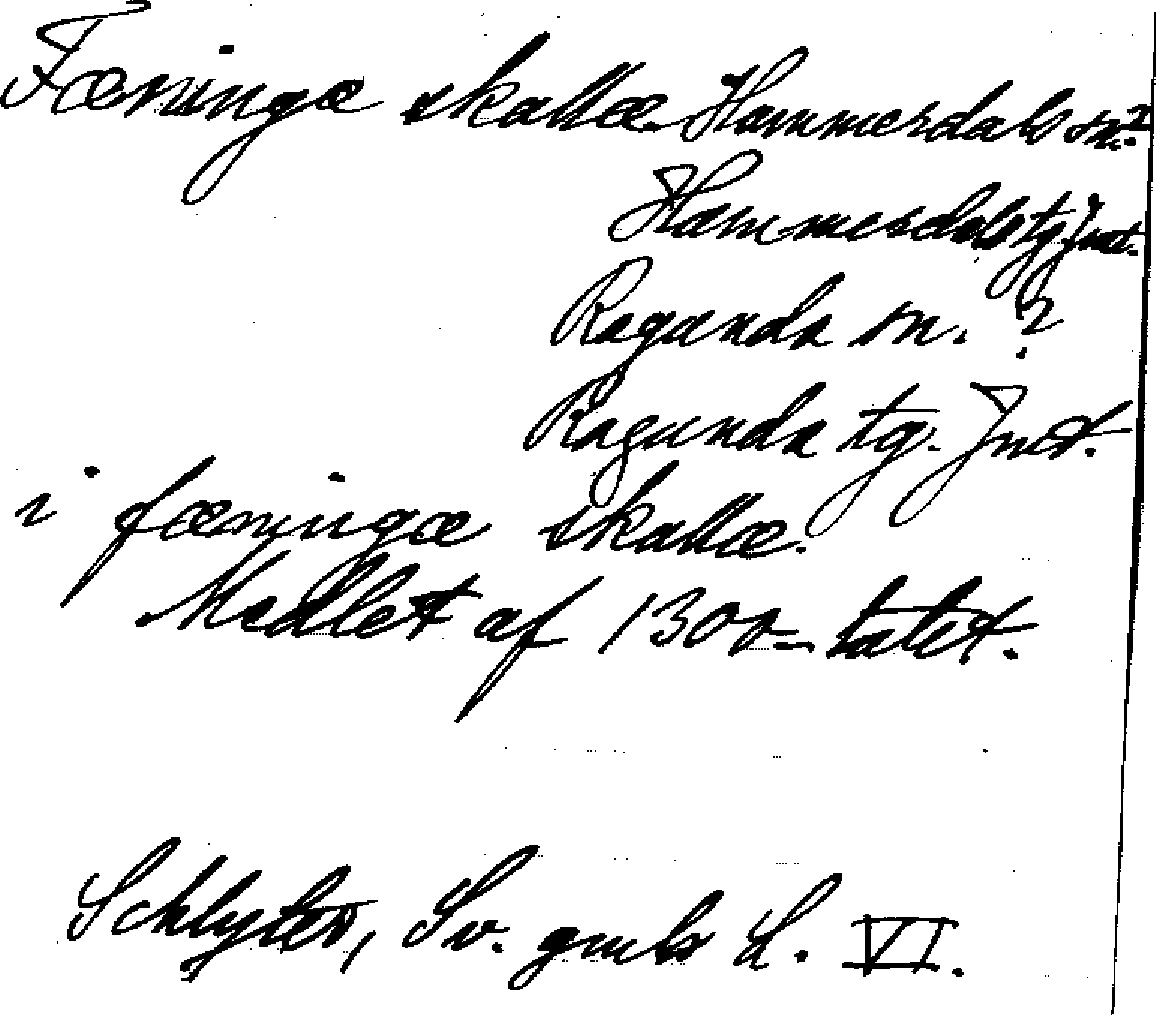 Fæninga skallæ Hammerdals sn.?
Hammerdals tg. Jmt.
Ragunda sn. ?
Ragunda tg. Jmt.
i fæningæ skallæ.
Medlet af 1300-talet.
Schlyter, Sv. gmls L. VI.